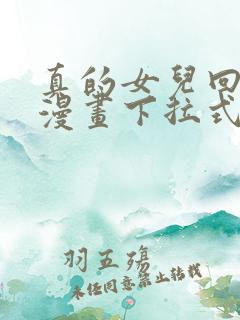 真的女兒回
漫畫下拉式
羽五殤
未经同意禁止转载